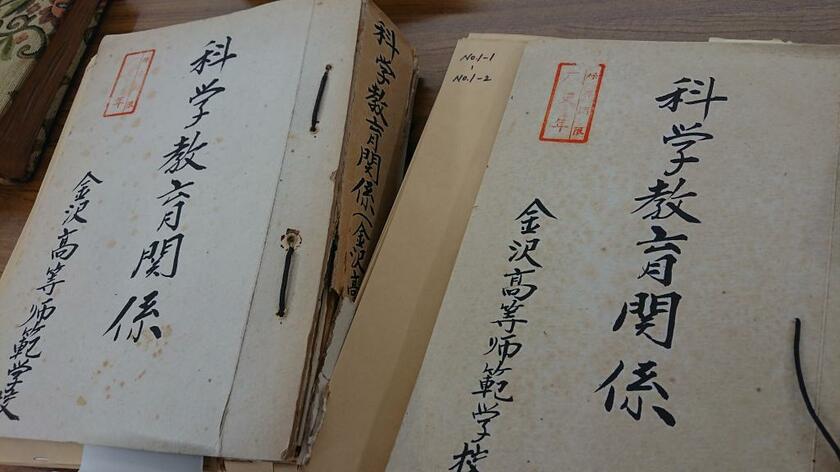 科学教育関係
金沢高等師範学校
科学教育関係(金沢高
No.1-1
No.1-2
科学教育関係
金沢高等師範学校